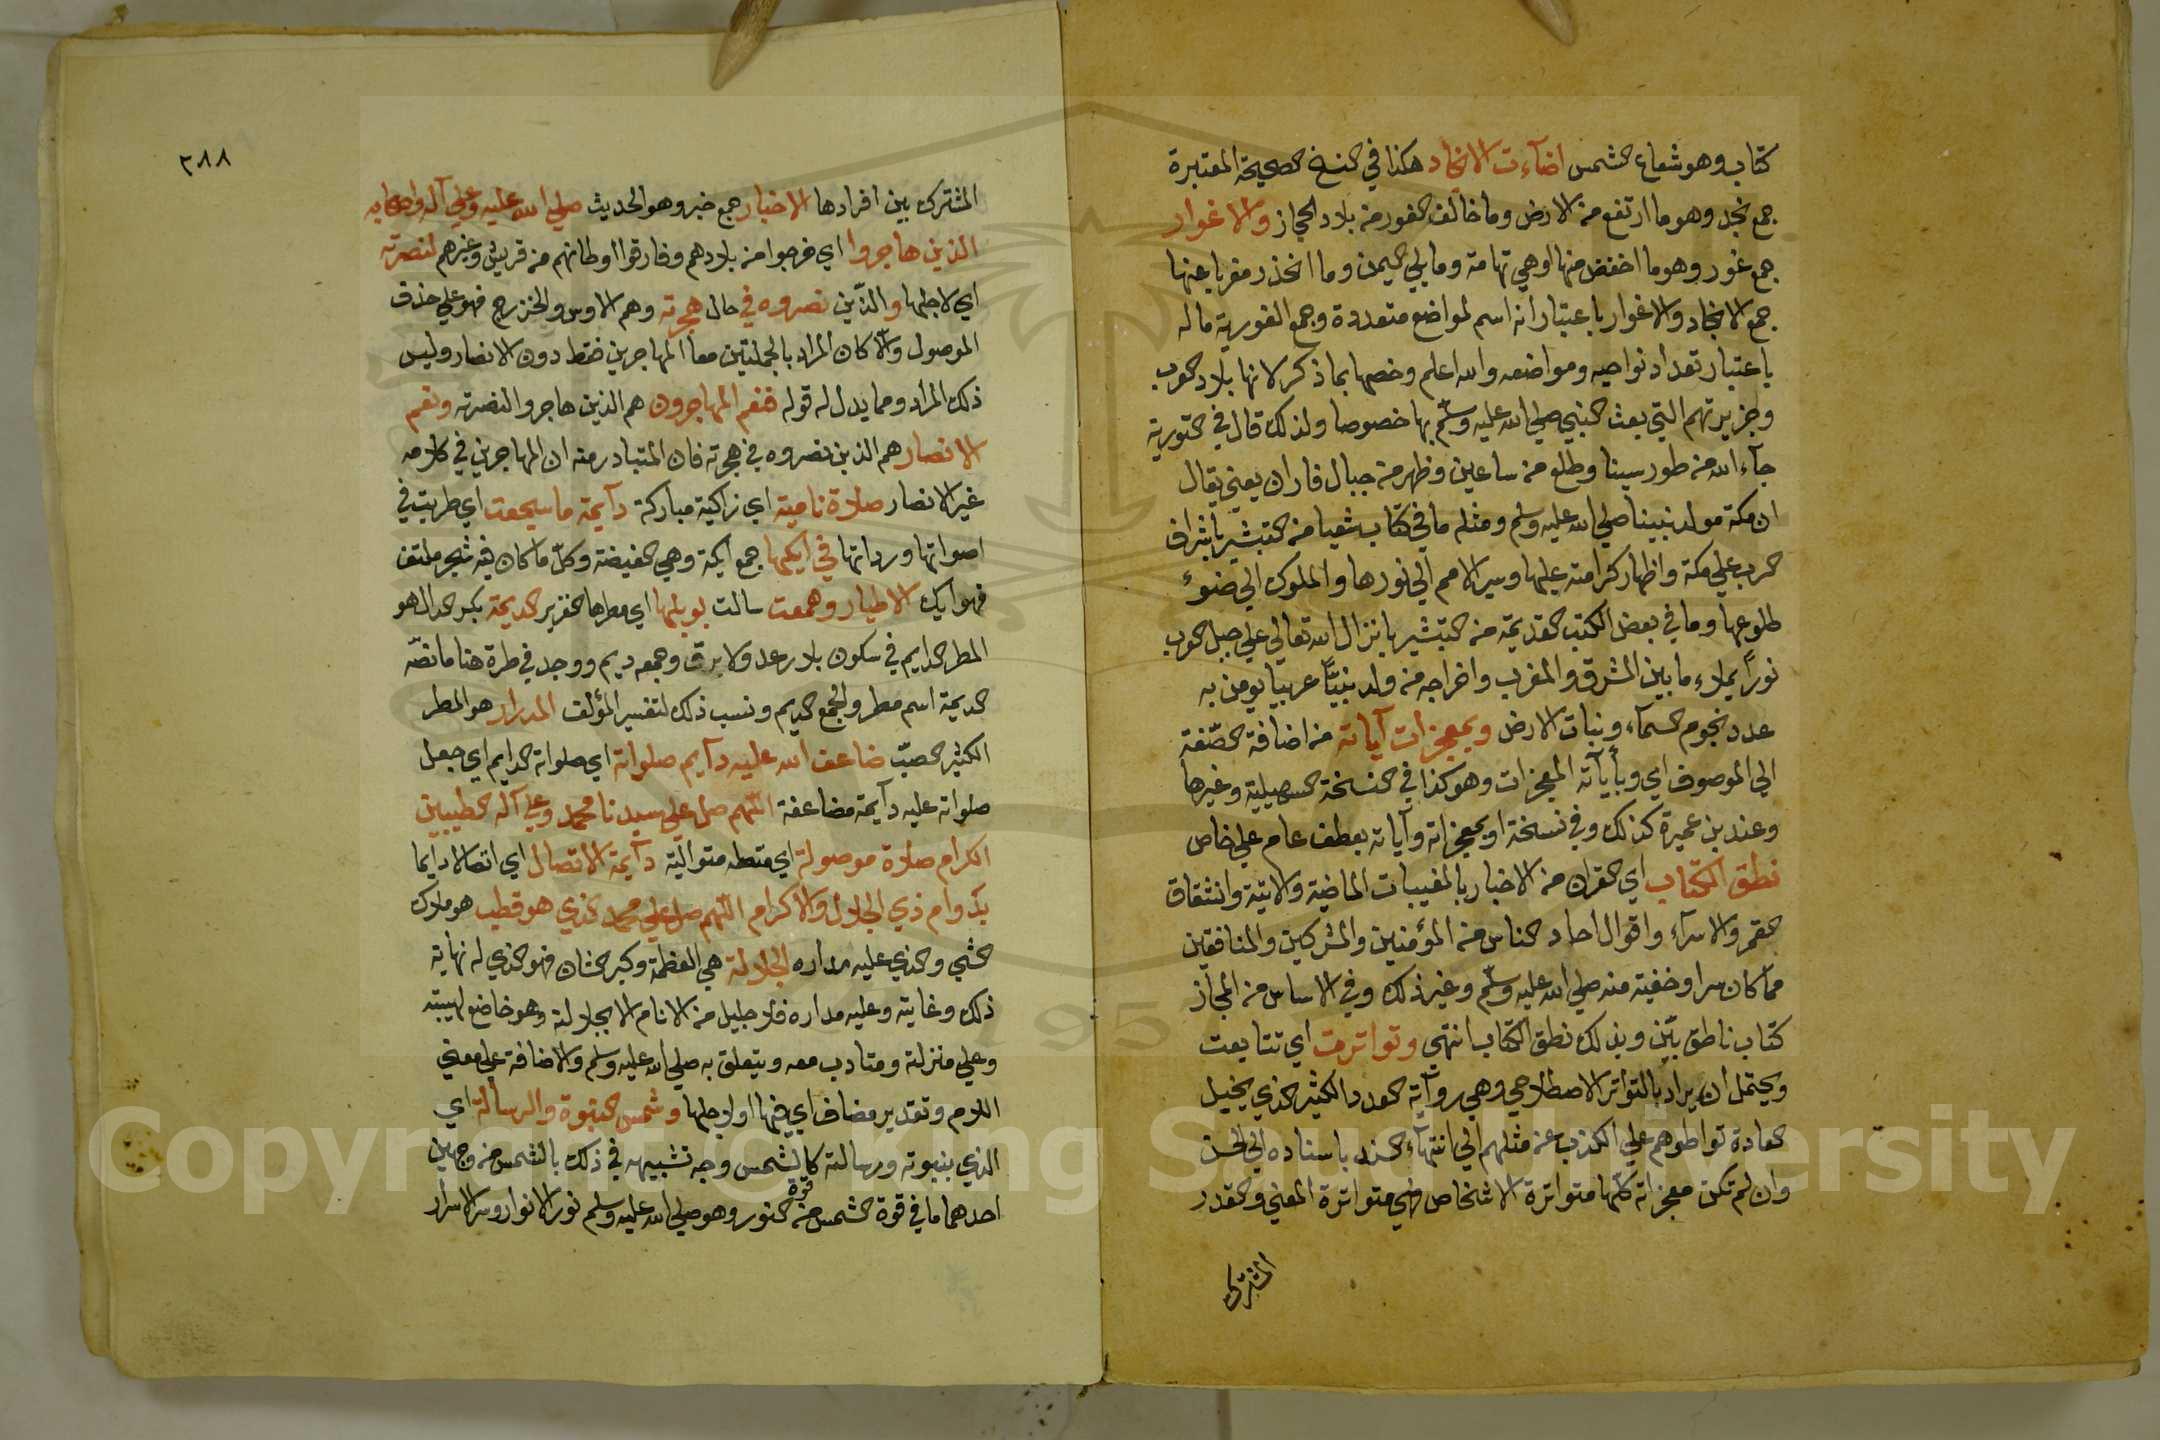 كتاب وهو شعاع الشمس اضآءت الانجاد هكذا في النسخ الصحيحة المعتبرة
جمع نجد وهو ما ارتفع من الارض وما خالف الغور من بلاد الحجاز والاغوار
جمع غور وهو ما اخفض منها وهي تهامة وما يلي اليمن وما انحذر مغربا عنها
جمع الانجاد والاغوار باعتبار انه اسم لمواضع متعددة وجمع الغورية ماله
باعتبار تعداد نواحيه ومواضعه والله اعلم وخصها بما ذكر لانها بلاد العرب
وجزيرتهم التي بعث النبي صلي الله عليه وسلم بها خصوصا ولذلك قال في التورية
جآء الله من طور سينا وطلع من ساعين وظهر من جبال فاران يعني يقال
ان مكة مولد نبينا صلي الله عليه وسلم ومثله ما في كتاب شعيا من التبشير باشراف
الرب علي مكة واظهار كرامته عليها وسير الامم الي نورها والملوك الي ضوء
طلوعها وما في بعض الكتب القديمة من التبشير بانزال الله تعالي علي جبل العرب
نوراً يملاء ما بين المشرق والمغرب واخراجه من ولد نبيًّا عربيا يومن به
عدد نجوم السمآء ونبات الارض وبمعجزات آياته من اضافة الصّفة
الي الموصوف اي وبأيآته المعجزات وهو كذا في النسخة السهيلية وغيرها
وعند بن عميرة كذلك وفي نسخة او بمعجزاته وآياته بعطف عام علي خاص
نطق الكتاب اي القران من الاخبار بالمغيبات الماضية والاتية وانشقاق
القمر والاسرآء واقوال احاد الناس من المؤمنين والمشركين والمنافقين
مما كان سرا وخفية منه صلي الله عليه وسلم وغير ذلك وفي الاساس من المجاز
كتاب ناطق بيّن وبذلك نطق الكتاب انتهي وتواترت اي تتابعت
ويحتمل ان يراد بالتواتر الاصطلاحي وهي روآية العدد الكثير الذي يحيل
العادة تواطوهم علي الكذب عن مثلهم الي انتهآء السند باسناده الي الحسن
وان لم تكن معجزاته كلها متواترة الاشخاص فهي متواترة المعني والقدر
المشترك
٣٨٨
المشترك بين افرادها الاخبار جمع خبر وهو الحديث صلي الله عليه وعلي آله واصحابه
الذين هاجروا اي خرجوا من بلادهم وفارقوا اوطانهم من قريش وغيرهم لنصرته
اي لاجلها والذّين نصروه في حال هجرته وهم الاوس والخزرج فهو علي حذف
الموصول والّا كان المراد بالجملتين معا المهاجرين فقط دون الانصار وليس
ذلك المراد ومما يدل له قوله فنعم المهاجرون هم الذين هاجروا لنصرته ونعم
الانصار هم الذين نصروه في هجرته فان المتبادر منه ان المهاجرين في كلامه
غير الانصار صلاة نامية اي زاكية مباركة دآيمة ما سجعت اي طربت في
اصواتها ورداتها في ايكها جمع ايكة وهي الغيضة وكلّ ما كان فيه شجر ملتف
فهو ايك الاطيار وهمعت سالت بوبلها اي مطرها الغزير الديمة بكسر الدال هو
المطر الدايم في سكون بلا رعد ولا برق وجمعه ديم ووجد في طرة هنا ما نصّه
الديمة اسم مطر والجمع الديم ونسب ذلك لتفسير المؤلف المدرار هو المطر
الكثير الصبّ ضاعف الله عليه دآيم صلواته اي صلواته الدايم اي جعل
صلواته عليه دآيمة مضاعفة اللّهم صل علي سيدنا محمد وعلي آله الطيبين
الكرام صلاة موصولة اي متصلة متوالية دآيمة الاتصال اي اتصالا دايما
بدوام ذي الجلال والاكرام اللّهم صل علي محمد الذي هو قطب هو ملاك
الشي والذي عليه مداره الجلالة هي العظمة وكبر الشان فهو الذي له نهاية
ذلك وغايته وعليه مداره فلا جليل من الانام الا بجلالته وهو خاضع لهيبته
وعلي منزلته ومتادب معه ويتعلق به صلي الله عليه وسلم والاضافة علي معني
اللام وتقدير مضاف اي فيها او لاجلها وشمس النبوة والرسالة اي
الذي بنبوته ورسالته كالشمس وجه تشبيهه في ذلك بالشمس من وجهين
احدهما ما في قوة الشمس من قوة النور وهو صلي الله عليه وسلم نور الانوار وسر الاسرار